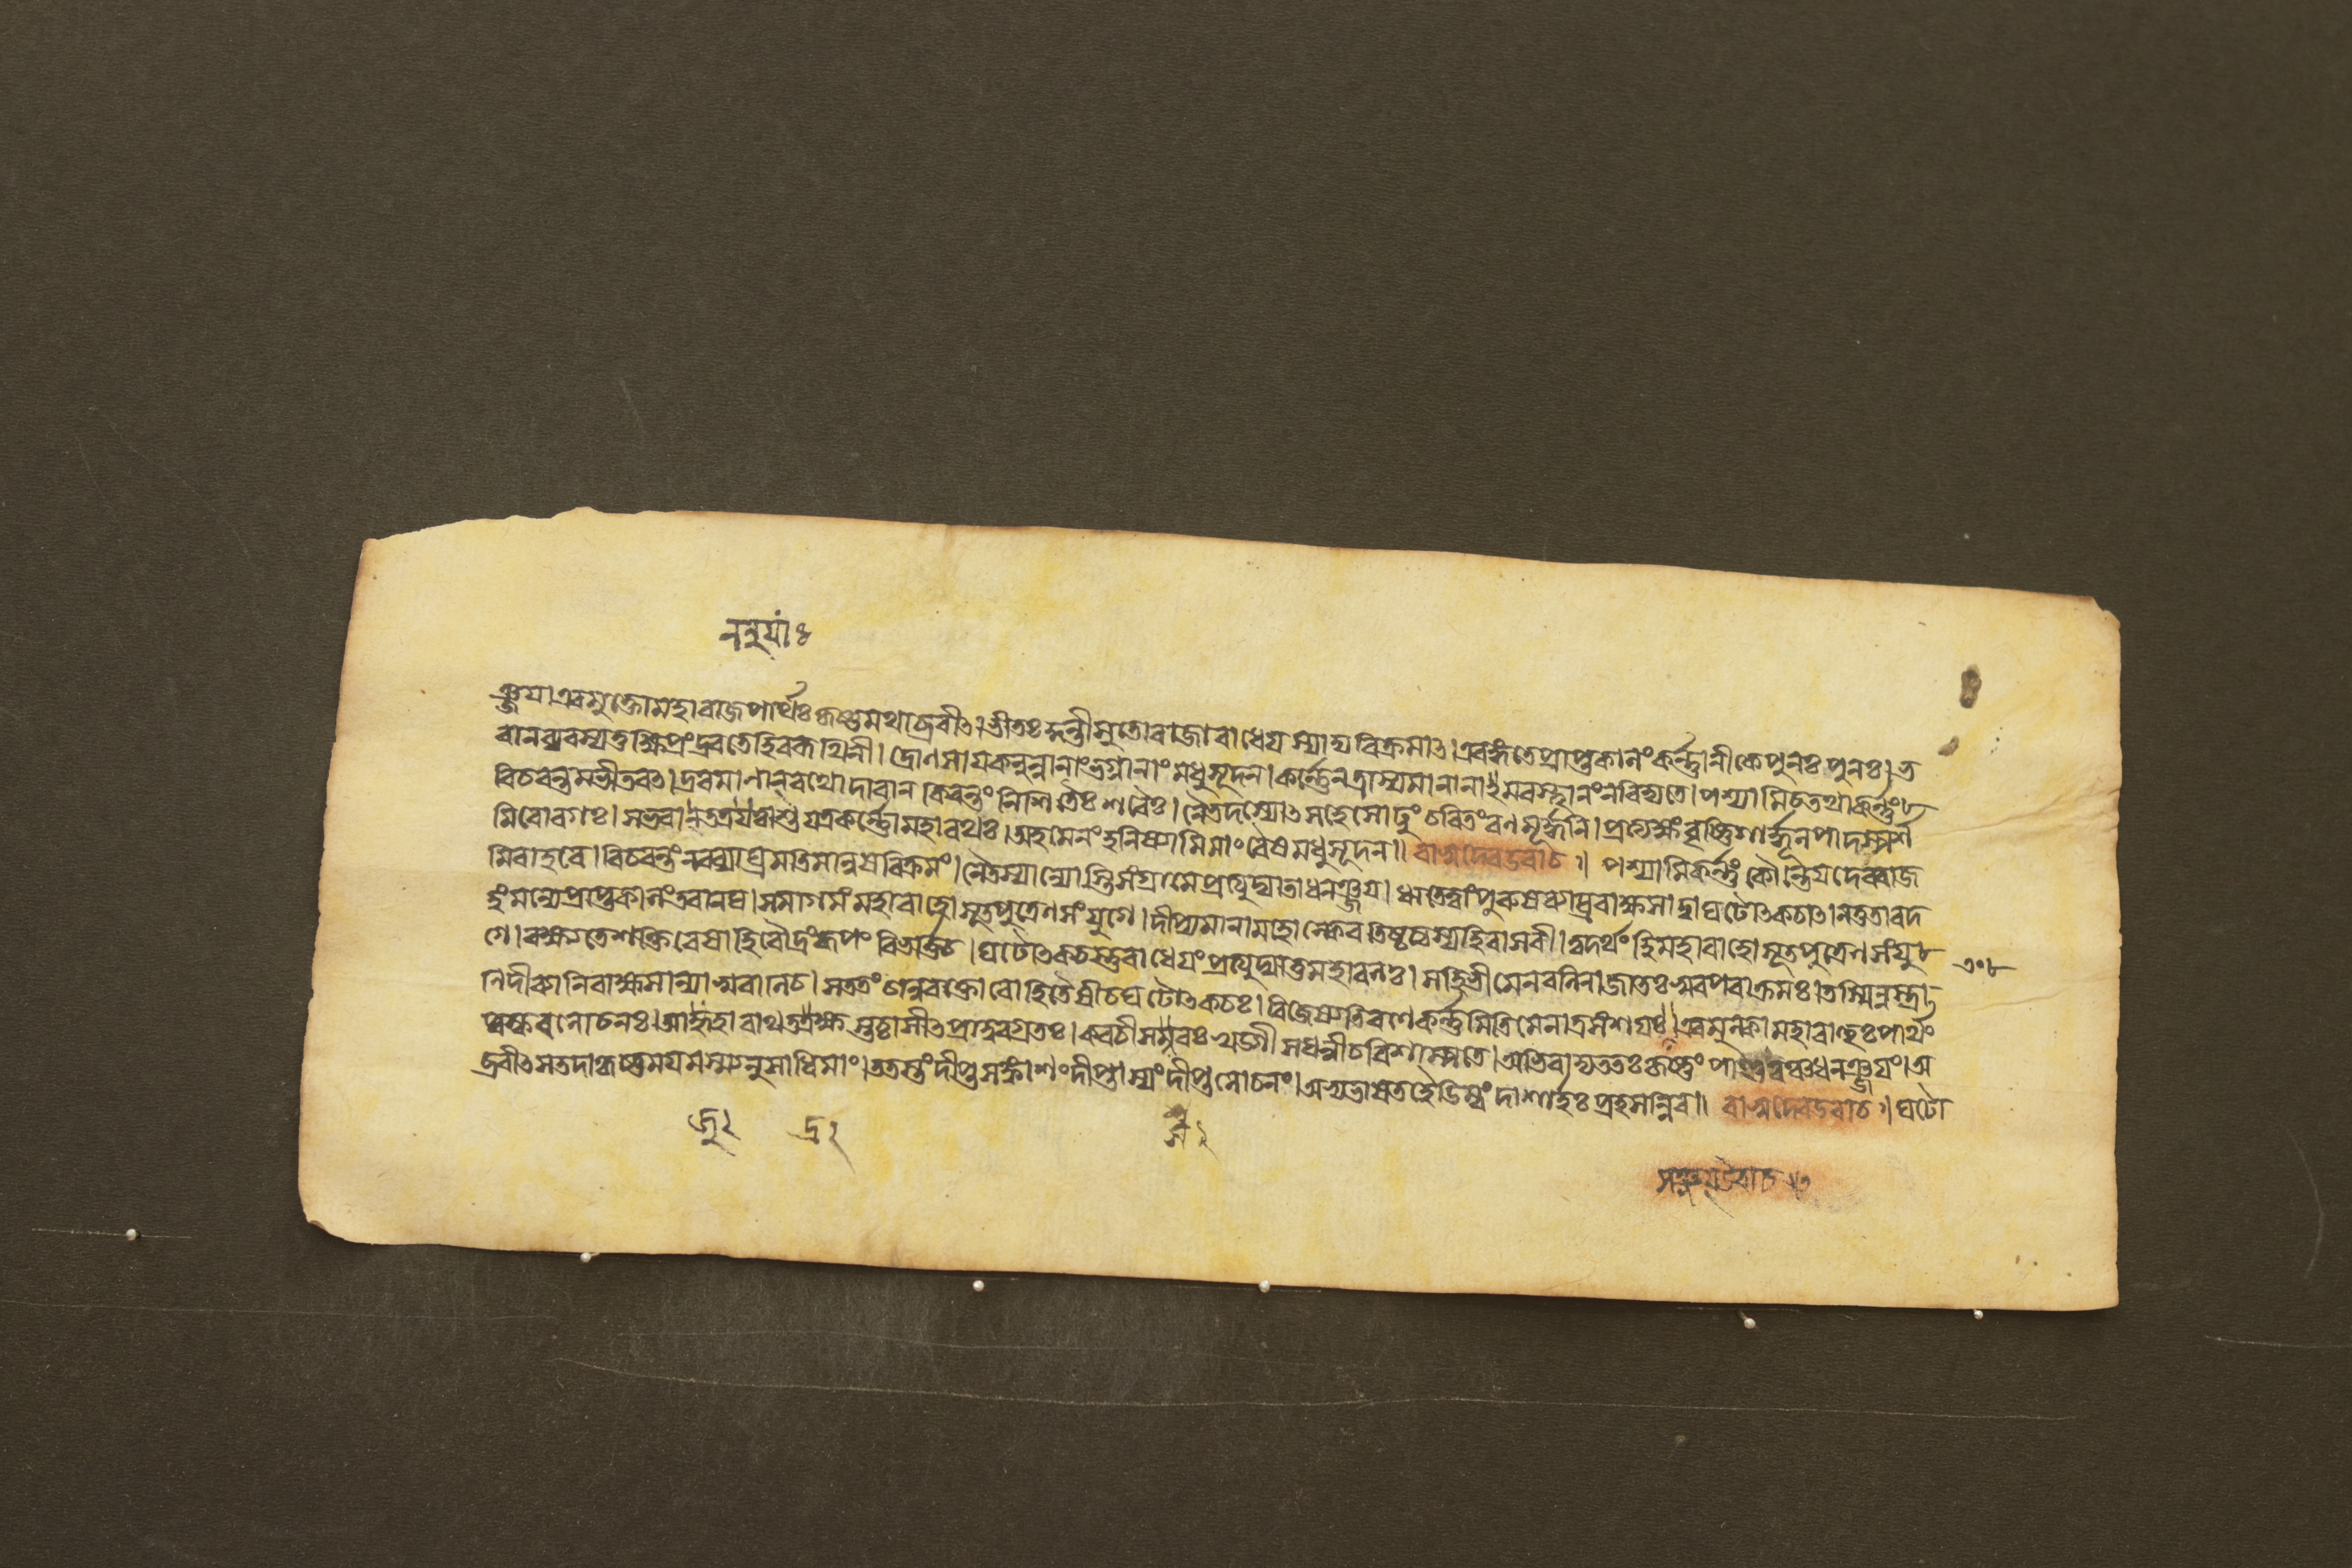 ঞ্জয়। এবমুক্তো মহারাজ পার্থঃ কৃষ্ণমথাব্রবীৎ। ভীতঃ কুন্তীসুতো রাজা রাধেয়স্যাদ্য বিক্রমাৎ। এবঙ্গতে প্রাপ্তকালং কর্ণানীকে পুনঃ পুনঃ। ভ
বান্ ব্যবস্যতু ক্ষিপ্রং দ্রবতে হি বরূথিনী। দ্রোণসায়কনুন্নানাং ভগ্নানাং মধুসূদন। কর্ণেন ত্রাস্যমানানামবস্থানং ন বিদ্যতে। পশ্যামি চ তথা কর্ণং
বিচরন্তমভীতবৎ। দ্রবমাণান্ রথোদারান্ কিরন্তং নিশিতৈঃ শরৈঃ। নৈতদস্যোৎসহে সোঢুং চরিতং রণমূর্দ্ধনি। প্রত্যক্ষং বৃষ্ণিশার্দ্দূল পাদস্পর্শ
মিবোরগঃ। স ভবান্ যাত্বাশু যত্র কর্ণো মহারথঃ। অহমেনং হনিষ্যামি মাং বৈষ মধুসূদন॥ বাসুদেব উবাচ॥ পশ্যামি কর্ণং কৌন্তেয় দেবরাজ
মিবাহবে। বিচরন্তং নরব্যাঘ্রমতিমানুষবিক্রমং। নৈতস্যান্যোস্তি সংগ্রামে প্রত্যুদ্যাতা ধনঞ্জয়। ঋতে ত্বাং পুরুষব্যাঘ্র রাক্ষসাদ্বা ঘটোৎকচাৎ। ন তু তাবদ
হং মন্যে প্রাপ্তকালং তবানঘ। সমাগমং মহাবাহো সূতপুত্রেণ সংযুগে। দীপ্যমানা মহোল্কেব তিষ্ঠত্যস্য হি বাসবী। ত্বদর্থং হি মহাবাহো সূতপুত্রেণ সংযু
গে। রক্ষ্যতে শক্তিরেষা হি রৌদ্রং রূপং বিভর্ত্তি চ। ঘটোৎকচস্তু রাধেয়ং প্রত্যুদ্যাতু মহাবলঃ। স হি ভীমেন বলিনা জাতঃ সুরপরাক্রমঃ। তস্মিন্নস্ত্রা
ণি দীব্যানি রাক্ষসান্যাসুরাণি চ। সততং চানুরক্তো বো হিতৈষী চ ঘটোৎকচঃ। বিজেষ্যতি রণে কর্ণমিতি মে নাত্র সংশয়ঃ॥ এবমুক্ত্বা মহাবাহুঃ পার্থং
পুষ্করলোচনঃ। আজুহাবাথ তদ্রক্ষ স্তচ্চাসীৎ প্রাদুরগ্রতঃ। কবচী সশরঃ খড়্গী সধন্বী চ বিশাম্পতে। অভিবাদ্য ততঃ কৃষ্ণং পাণ্ডবঞ্চ ধনঞ্জয়ং। অ
ব্রবীৎ স তদা কৃষ্ণময়মস্ম্যনুসাধি মাং। ততস্তং দীপ্তসঙ্কাশং দীপ্তাস্যং দীপ্তলোচনং। অভ্যভাষত হৈডিম্বং দাশার্হঃ প্রহসন্নিব॥ বাসুদেব উবাচ॥ ঘটো
সঞ্জয় উবাচ